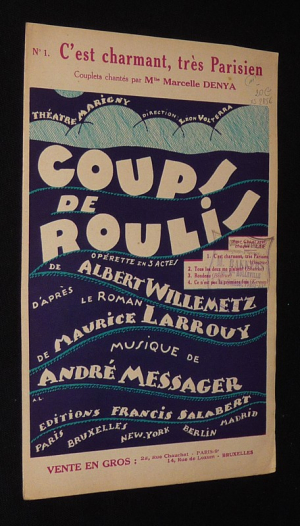 N° 1. C'est charmant, très Parisien
Couplets chantés par Mlle Marcelle DENYA
THÉATRE MARIGNY
DIRECTION: LÉON VOLTERRA
COUPS
DE
ROULIS
OPÉRETTE EN 3 ACTES
DE ALBERT WILLEMETZ
D'APRÈS LE ROMAN
DE MAURICE LARROUY
MUSIQUE DE
ANDRÉ MESSAGER
EDITIONS FRANCIS SALABERT
PARIS BRUXELLES NEW-YORK BERLIN MADRID
1. C'est charmant, très Parisien
2. Tous les deux me plaisent
VENTE EN GROS :
22, rue Chauchat - PARIS-9e
14, Rue de Loxum - BRUXELLES